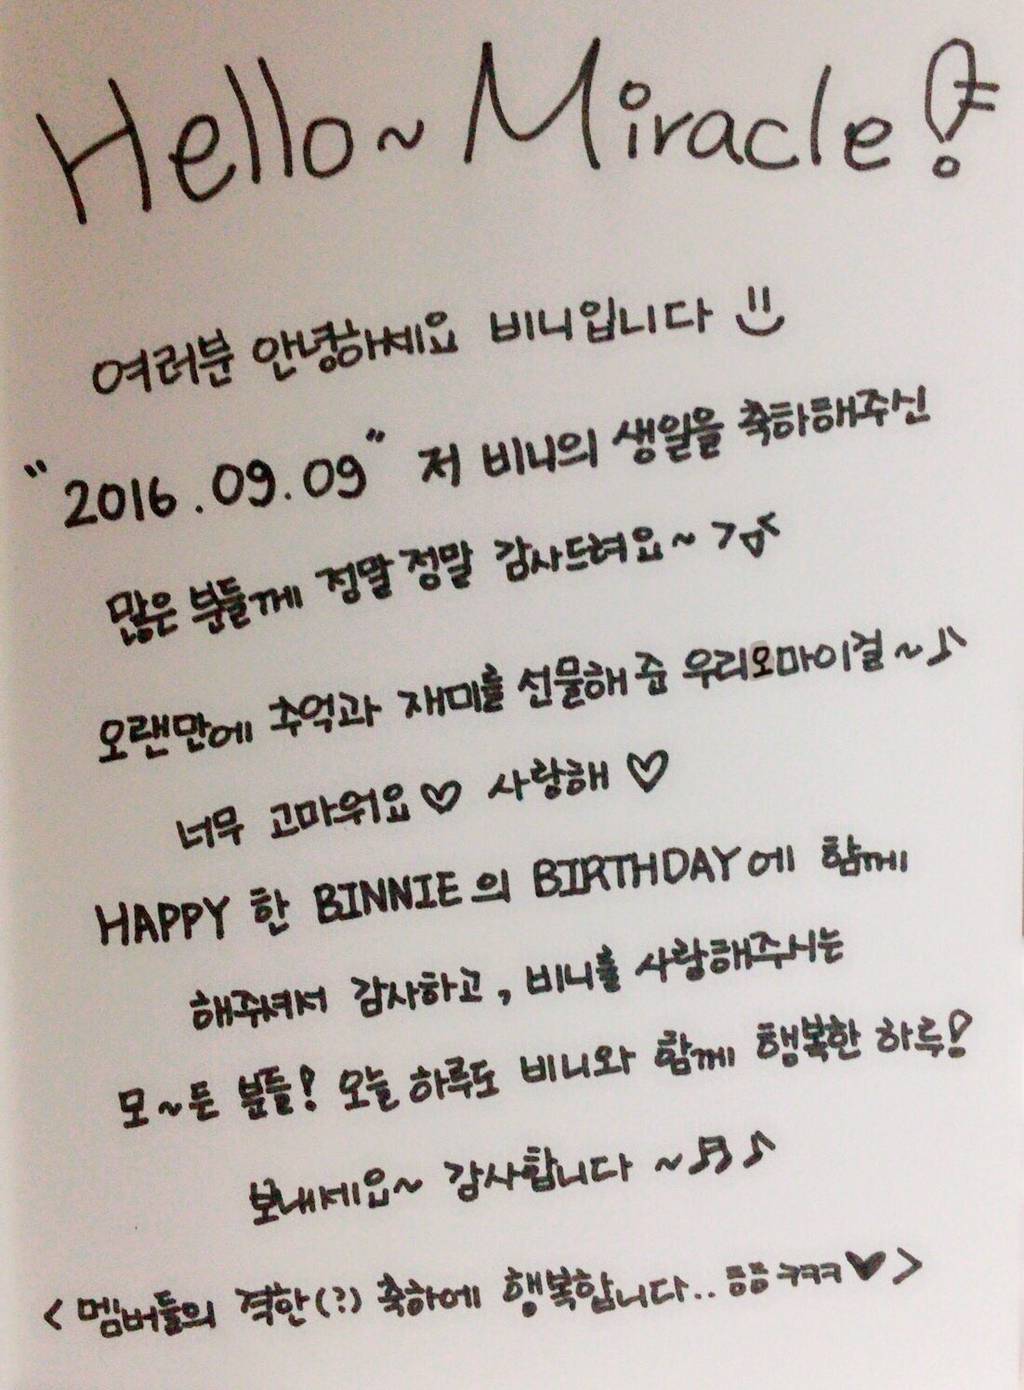 Hello~ Miracle!
여러분 안녕하세요 비니입니다
"2016.09.09" 저 비니의 생일을 축하해주신
많은 분들께 정말정말 감사드려요~
오랜만에 추억과 재미를 선물해 준 우리오마이걸~♪
너무 고마워요♡ 사랑해♡
HAPPY 한 BINNIE의 BIRTHDAY에 함께
해주셔서 감사하고, 비니를 사랑해주시는
모~든 분들! 오늘 하루도 비니와 함께 행복한 하루!
보내세요~ 감사합니다 ~♬♪
<멤버들의 격한(?) 축하에 행복합니다.. 흠흠 ㅋㅋㅋ♥>